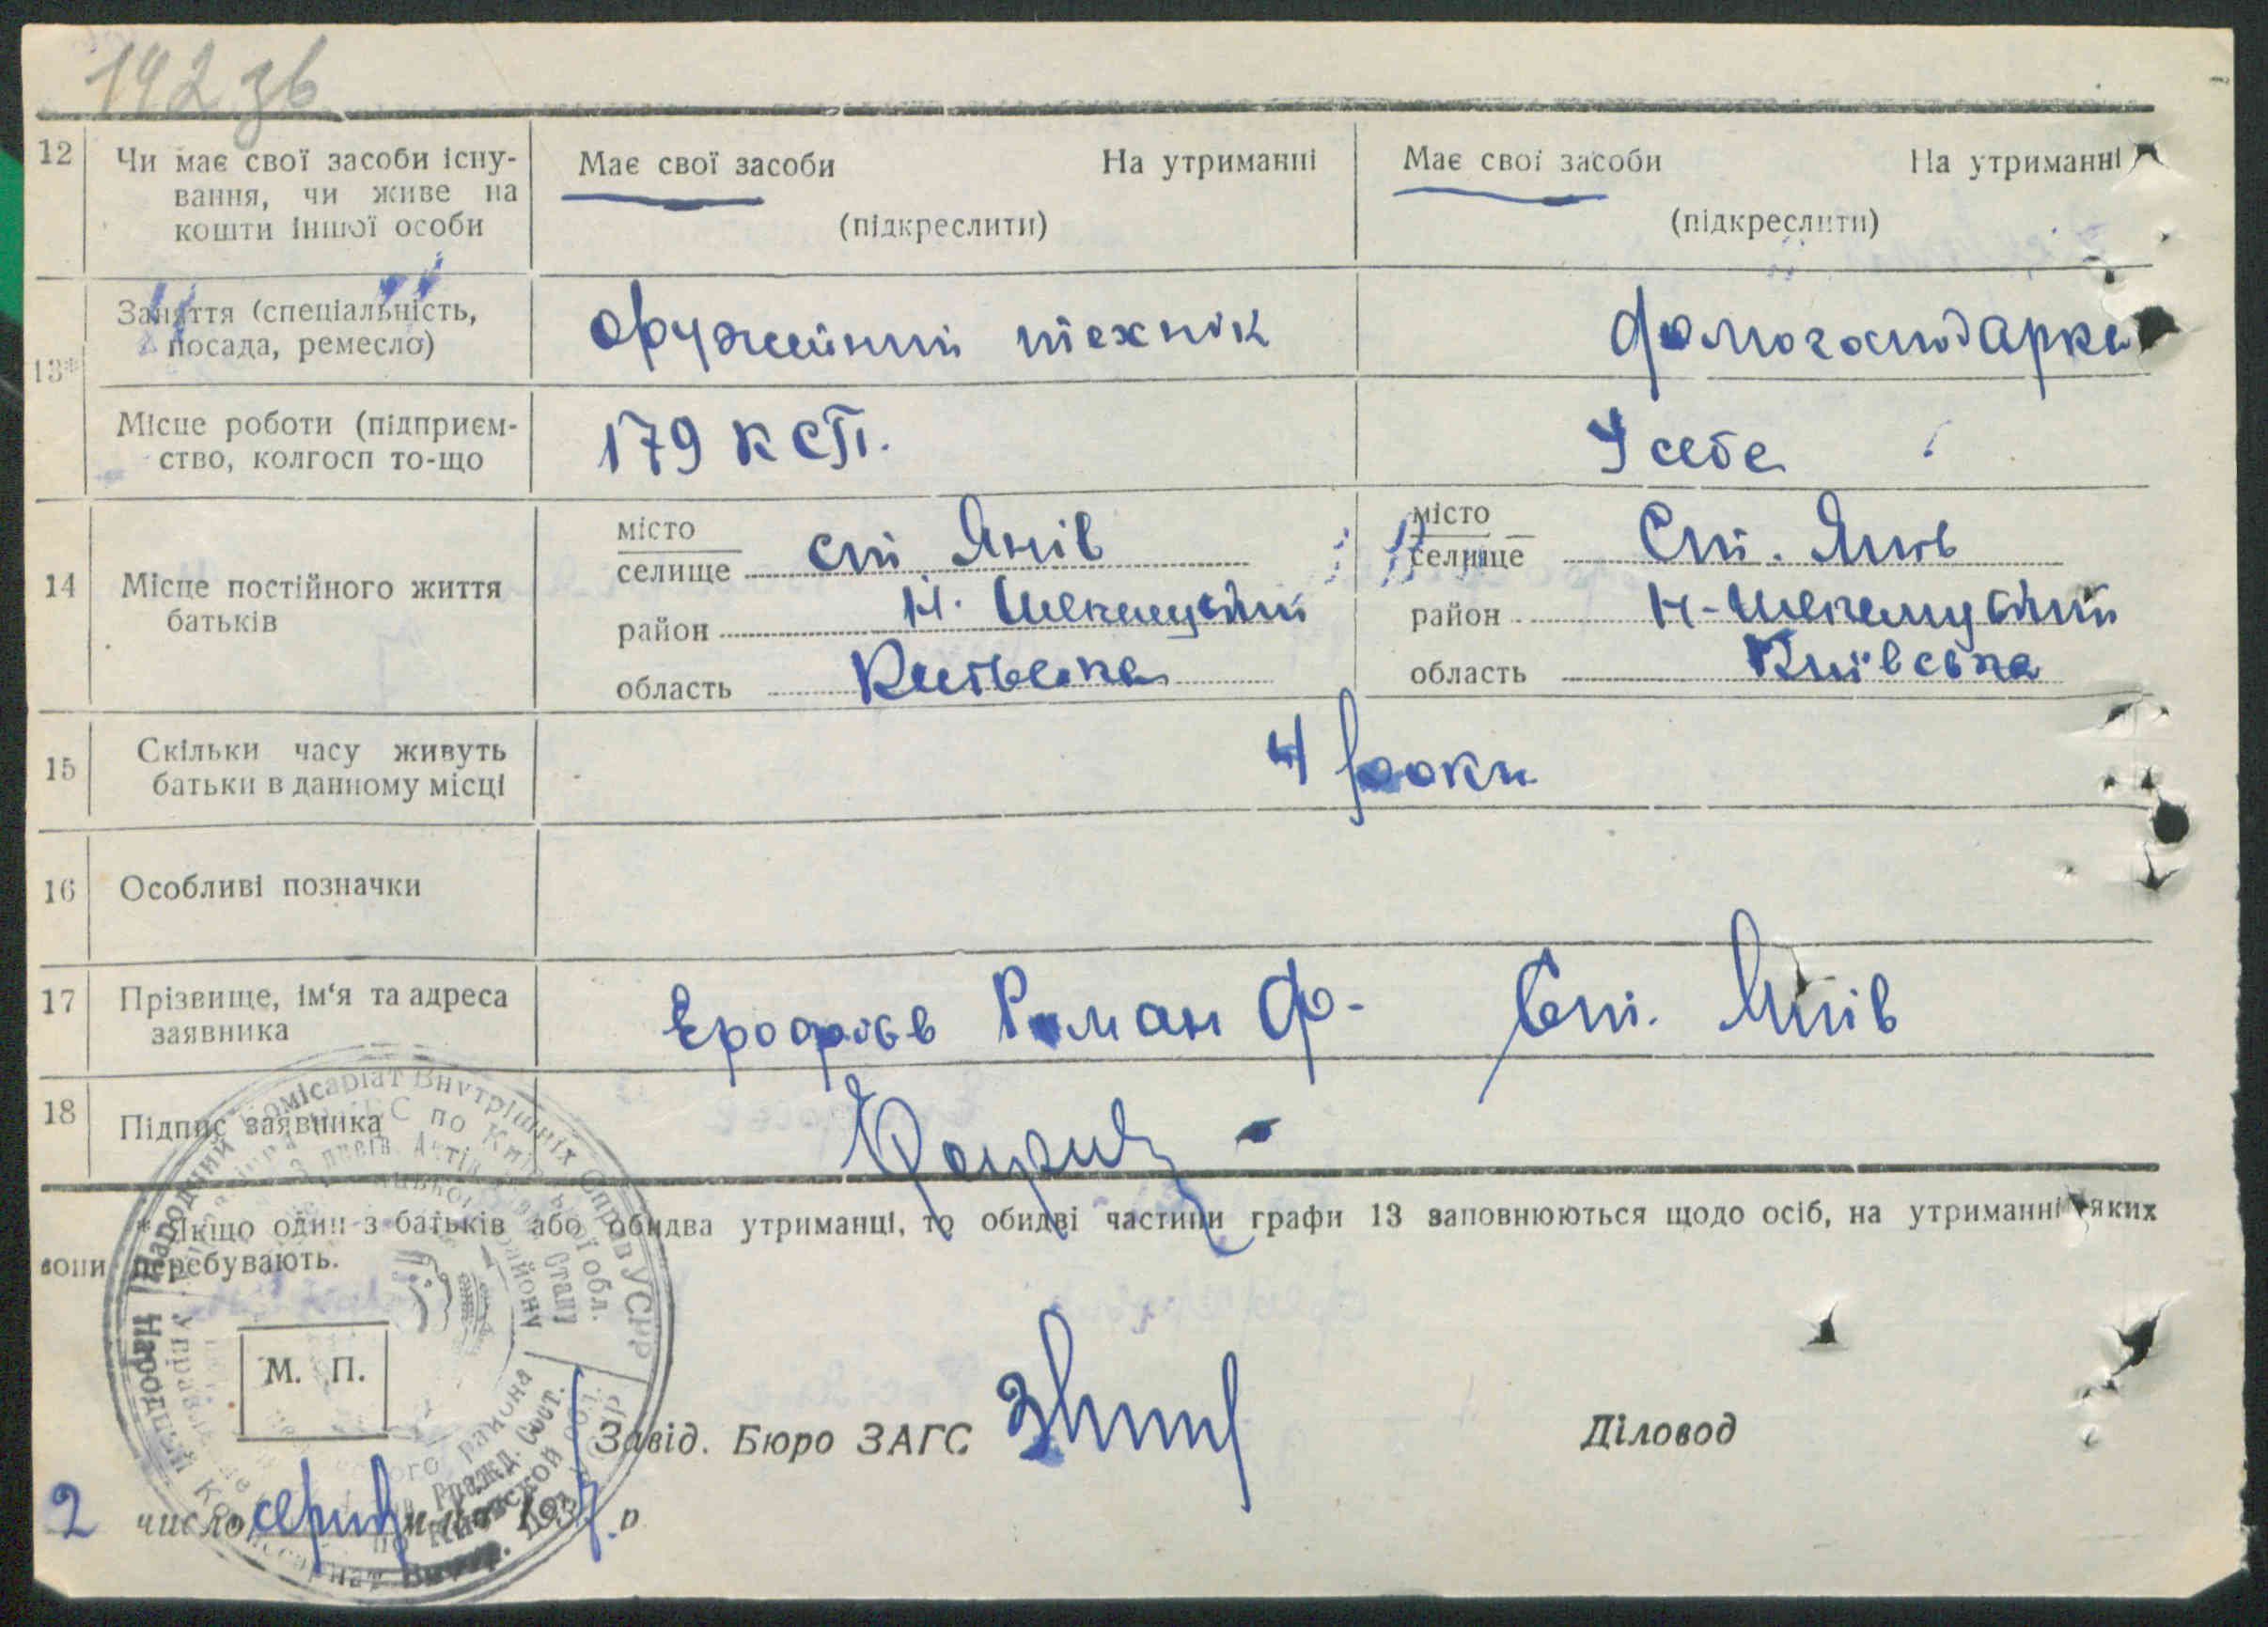 142 зв
12 Чи має свої засоби існу- Має свої засоби На утриманні Має свої засоби На утриманні
вання, чи живе на
кошти іншої особи (підкреслити) (підкреслити)
13* Заняття (спеціальність, оружейний технік домогосподарка
посада, ремесло)
Місце роботи (підприєм- 179 К СП. У себе
ство, колгосп то-що
14 Місце постійного життя батьків
місто селище ст Янів місто селище Ст. Янів
район Н. район Н-
область Київська область Київська
15 Скільки часу живуть 4 роки
батьки в данному місці
16 Особливі позначки
17 Прізвище, ім‘я та адреса Ерофієв Роман Ф- Ст. Янів
заявника
18 Підпис заявника
* Якщо один з батьків або обидва утриманці, то обидві частини графи 13 заповнюються щодо осіб, на утриманні яких
вони перебувають.
Народний Комісаріат Внутрішніх Справ УСРР
М. П.
Завід. Бюро ЗАГС Діловод
2 число серпня м-ця 1937 р